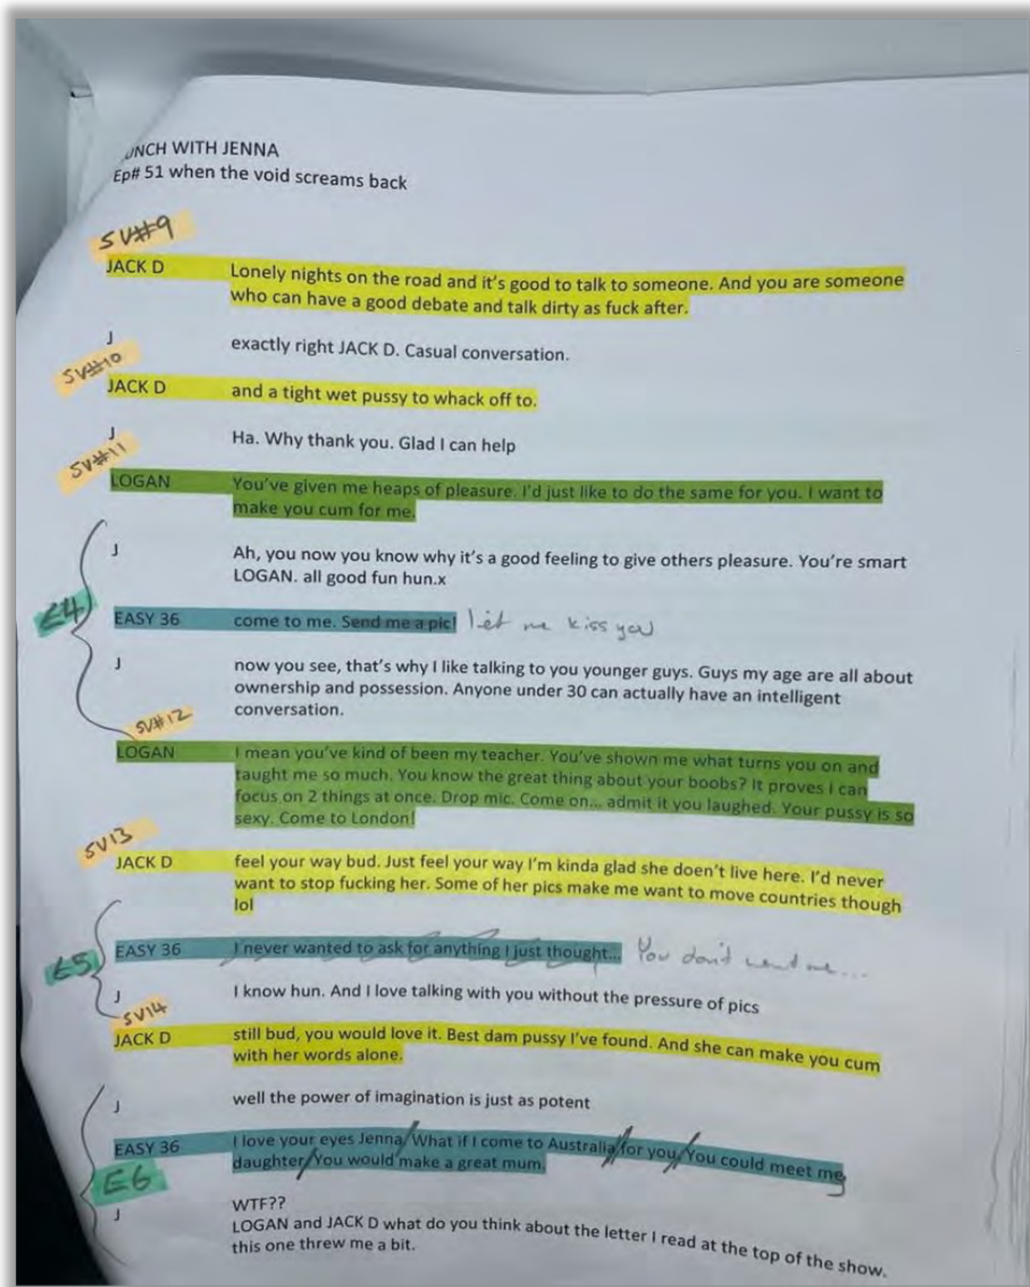 UNCH WITH JENNA
Ep# 51 when the void screams back
SV#9
JACK D Lonely nights on the road and it's good to talk to someone. And you are someone
who can have a good debate and talk dirty as fuck after.
J exactly right JACK D. Casual conversation.
SV#10
JACK D and a tight wet pussy to whack off to.
J Ha. Why thank you. Glad I can help
SV#11
LOGAN You've given me heaps of pleasure. I'd just like to do the same for you. I want to
make you cum for me.
J Ah, you now you know why it's a good feeling to give others pleasure. You're smart
LOGAN. all good fun hun.x
E4
EASY 36 come to me. Send me a pic! let me kiss you
J now you see, that's why I like talking to you younger guys. Guys my age are all about
ownership and possession. Anyone under 30 can actually have an intelligent
conversation.
SV#12
LOGAN I mean you've kind of been my teacher. You've shown me what turns you on and
taught me so much. You know the great thing about your boobs? It proves I can
focus on 2 things at once. Drop mic. Come on... admit it you laughed. Your pussy is so
sexy. Come to London!
SV13
JACK D feel your way bud. Just feel your way I'm kinda glad she doen't live here. I'd never
want to stop fucking her. Some of her pics make me want to move countries though
lol
E5
EASY 36 I never wanted to ask for anything I just thought... You don't me...
J I know hun. And I love talking with you without the pressure of pics
SV14
JACK D still bud, you would love it. Best dam pussy I've found. And she can make you cum
with her words alone.
J well the power of imagination is just as potent
EASY 36 I love your eyes Jenna/What if I come to Australia//for you//You could meet my
daughter/You would make a great mum.
E6
J WTF??
LOGAN and JACK D what do you think about the letter I read at the top of the show.
this one threw me a bit.